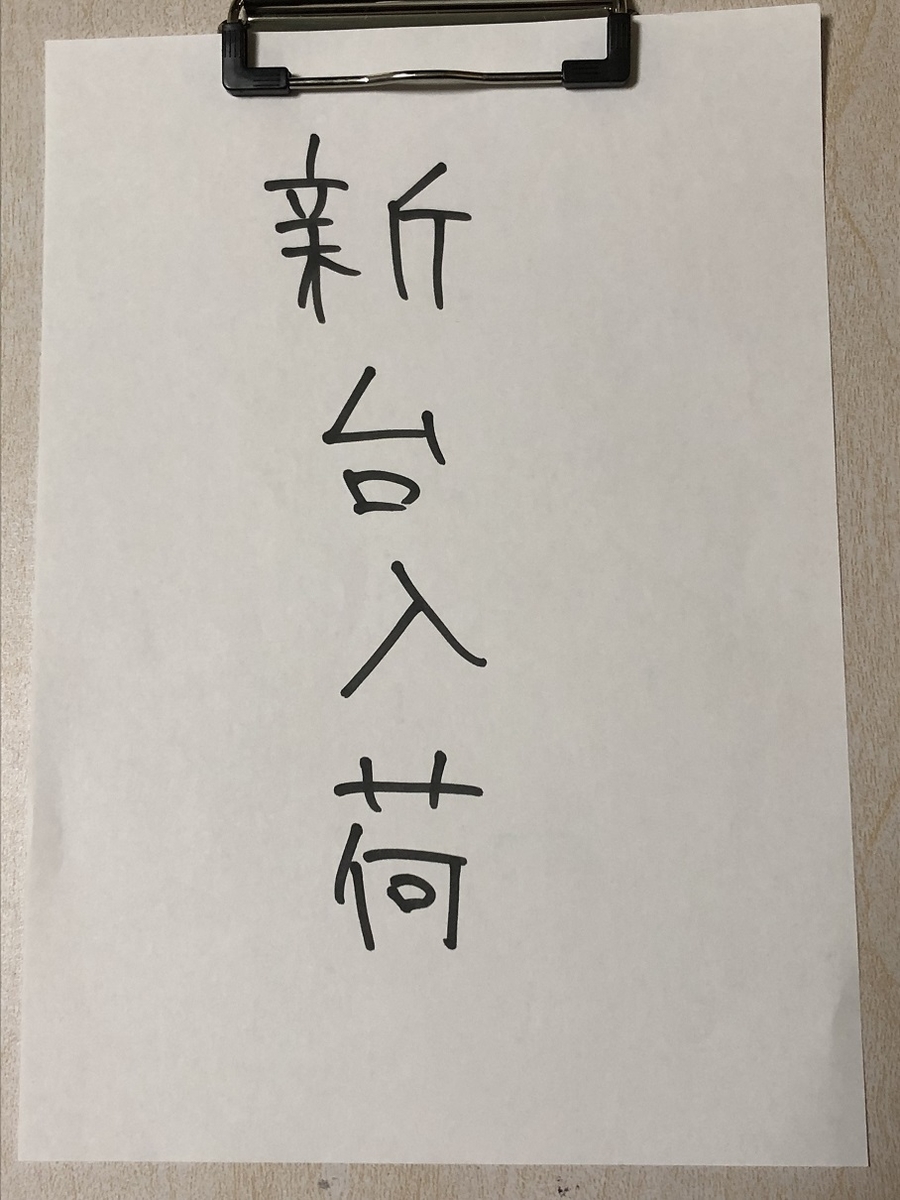 新台入荷